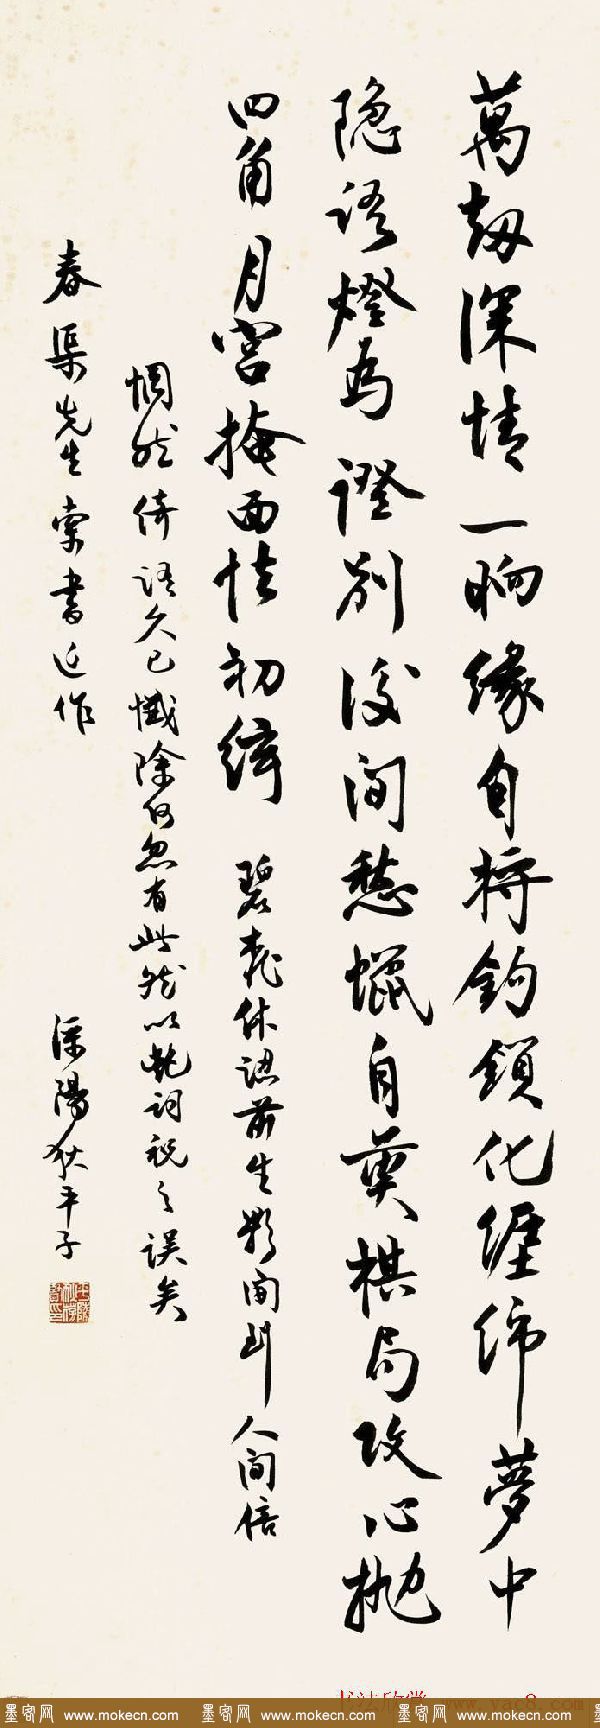 萬劫深情一晌緣自將鈎鎖化纏綿夢中
隱語燈為證別後間愁蠟自煎棋局攻心拋
四角月宮掩面怯初絃 碧桃休認前生影開到人間倍
惘然綺語久已懺除何忽有此然以艷詞視之誤矣
春渠先生索書近作 溧陽狄平子
书法欣赏 www.yac8.com
墨客网 www.mokecn.com 墨客网 www.mokecn.com 墨客网 www.mokecn.com